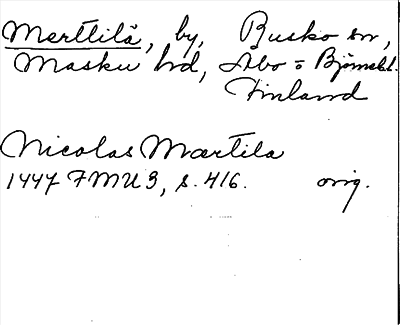 Merttilä, by, Rusko sn,
Masku hd, Åbo o Björneb.
Finland
Nicolas Mærtila
1447 FMU 3, s. 416. orig.